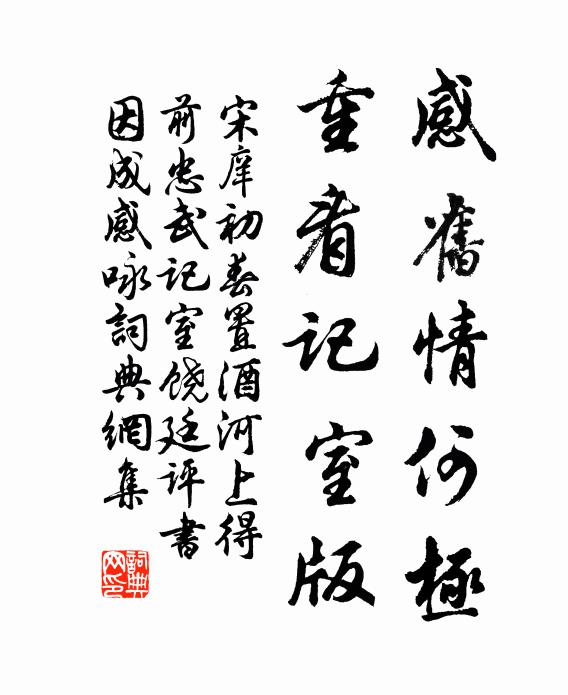 感舊情何極
重看記室版
宋庠初春置酒河上得
前忠武記室饒廷評書
因成感咏詞典網集
詞典網印